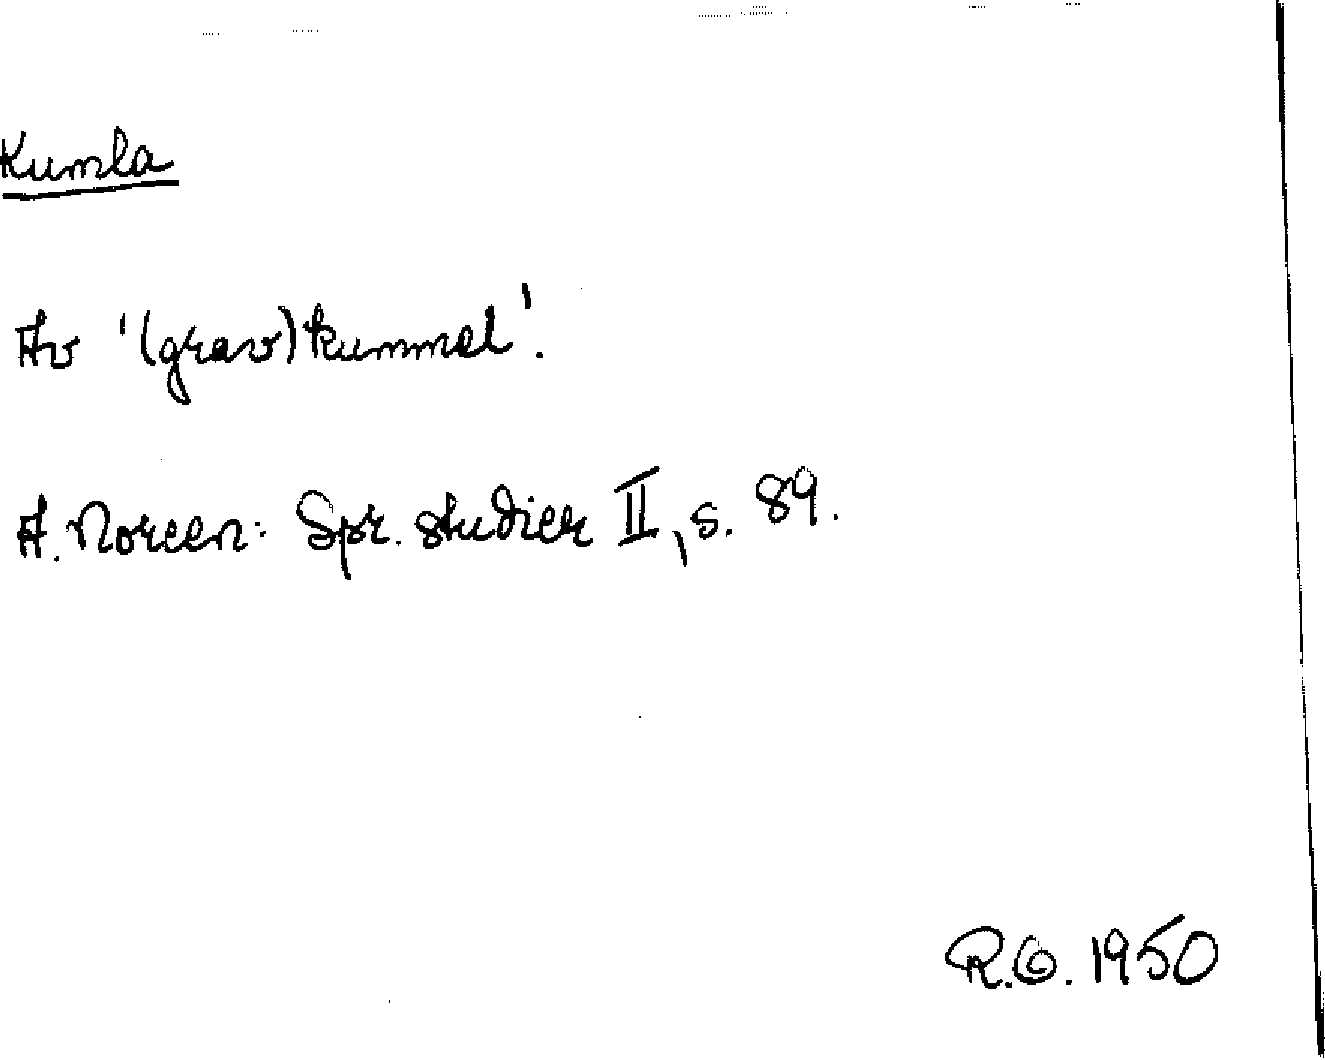 Kumla
Av '(grav)kummel'.
A. Noreen: Spr. studier II, s. 89.
R.O. 1950